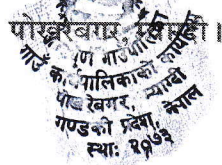 पोखरेबगर, म्याग्दी ।
गाउँपालिका
गाउँ कार्यपालिकाको कार्यालय
पोखरेबगर, म्याग्दी
गण्डकी प्रदेश, नेपाल
स्था: २०७३